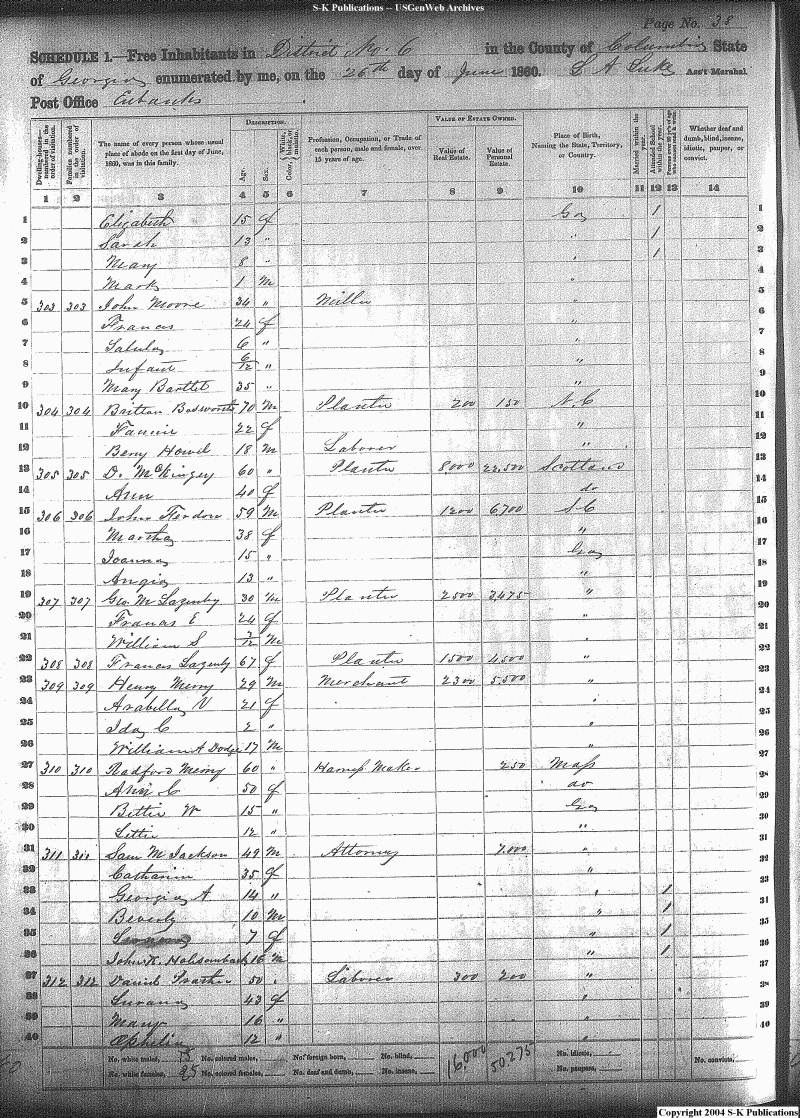 S-K Publications -- USGenWeb Archives
Page No. 38
SCHEDULE 1.—Free Inhabitants in District No. 6 in the County of Columbia State
of Georgia enumerated by me, on the 26th day of June 1860. Ass't Marshal
Post Office Eubanks
Dwelling-houses— numbered in the order of visitation.
Families numbered in the order of visitation.
The name of every person whose usual place of abode on the first day of June, 1860, was in this family.
DESCRIPTION.
Age.
Sex.
Color, White, black, or mulatto.
Profession, Occupation, or Trade of each person, male and female, over 15 years of age.
VALUE OF ESTATE OWNED.
Value of Real Estate.
Value of Personal Estate.
Place of Birth, Naming the State, Territory, or Country.
Married within the year.
Attended School within the year.
Persons over 20 y'rs of age who cannot read & write.
Whether deaf and dumb, blind, insane, idiotic, pauper, or convict.
1 2 3 4 5 6 7 8 9 10 11 12 13 14
1 Elizabeth 15 f Ga 1 1
2 Sarah 13 " " 1 2
3 Mary 8 " " 1 3
4 Mark 1 m " 4
5 303 303 John Moore 34 " Miller " 5
6 Frances 24 f " 6
7 6 " " 7
8 Infant 6/12 " " 8
9 Mary Bartlet 35 " " 9
10 304 304 Britton Bosworth 70 M Planter 200 150 N.C 10
11 Fannie 22 f " 11
12 Berry Howel 18 M Laborer " 12
13 305 305 D. McKinzey 60 " Planter 8,000 22,500 Scotland 13
14 Ann 40 f do 14
15 306 306 John 59 M Planter 1200 6,700 S.C 15
16 Martha 38 f " 16
17 Joanna 15 " Ga 17
18 Angia 13 " " 18
19 307 307 Geo. M Lazenby 30 M Planter 2500 3,475 " 19
20 Frances E 24 f " 20
21 William S /12 M " 21
22 308 308 Frances Lazenby 67 f Planter 1500 4,500 " 22
23 309 309 Henry Merry 29 M Merchant 2300 5,500 " 23
24 Arabella V 21 f " 24
25 Ida C 2 " " 25
26 William A Dodge 17 M " 26
27 310 310 Radford Merry 60 " Harness Maker 250 Mass 27
28 Ann C 50 f do 28
29 Bettie W 15 " Ga 29
30 Lettie 12 " " 30
31 311 311 Sam M Jackson 49 M Attorney 7,000 " 31
32 Catharine 35 f " 32
33 Georgia A 14 " " 1 33
34 Beverly 10 M " 1 34
35 7 f " 1 35
36 John K. Holsomback 16 M " 1 36
37 312 312 David 50 " Laborer 300 200 " 37
38 Lurana 43 f " 38
39 Mary 16 " " 39
40 Ophelia 12 " " 40
No. white males, 15 No. colored males, No. foreign born, No. blind, 16,000 50,275 No. idiotic,
No. white females, 25 No. colored females, No. deaf and dumb, No. insane, No. paupers, No. convicts,
Copyright 2004 S-K Publications